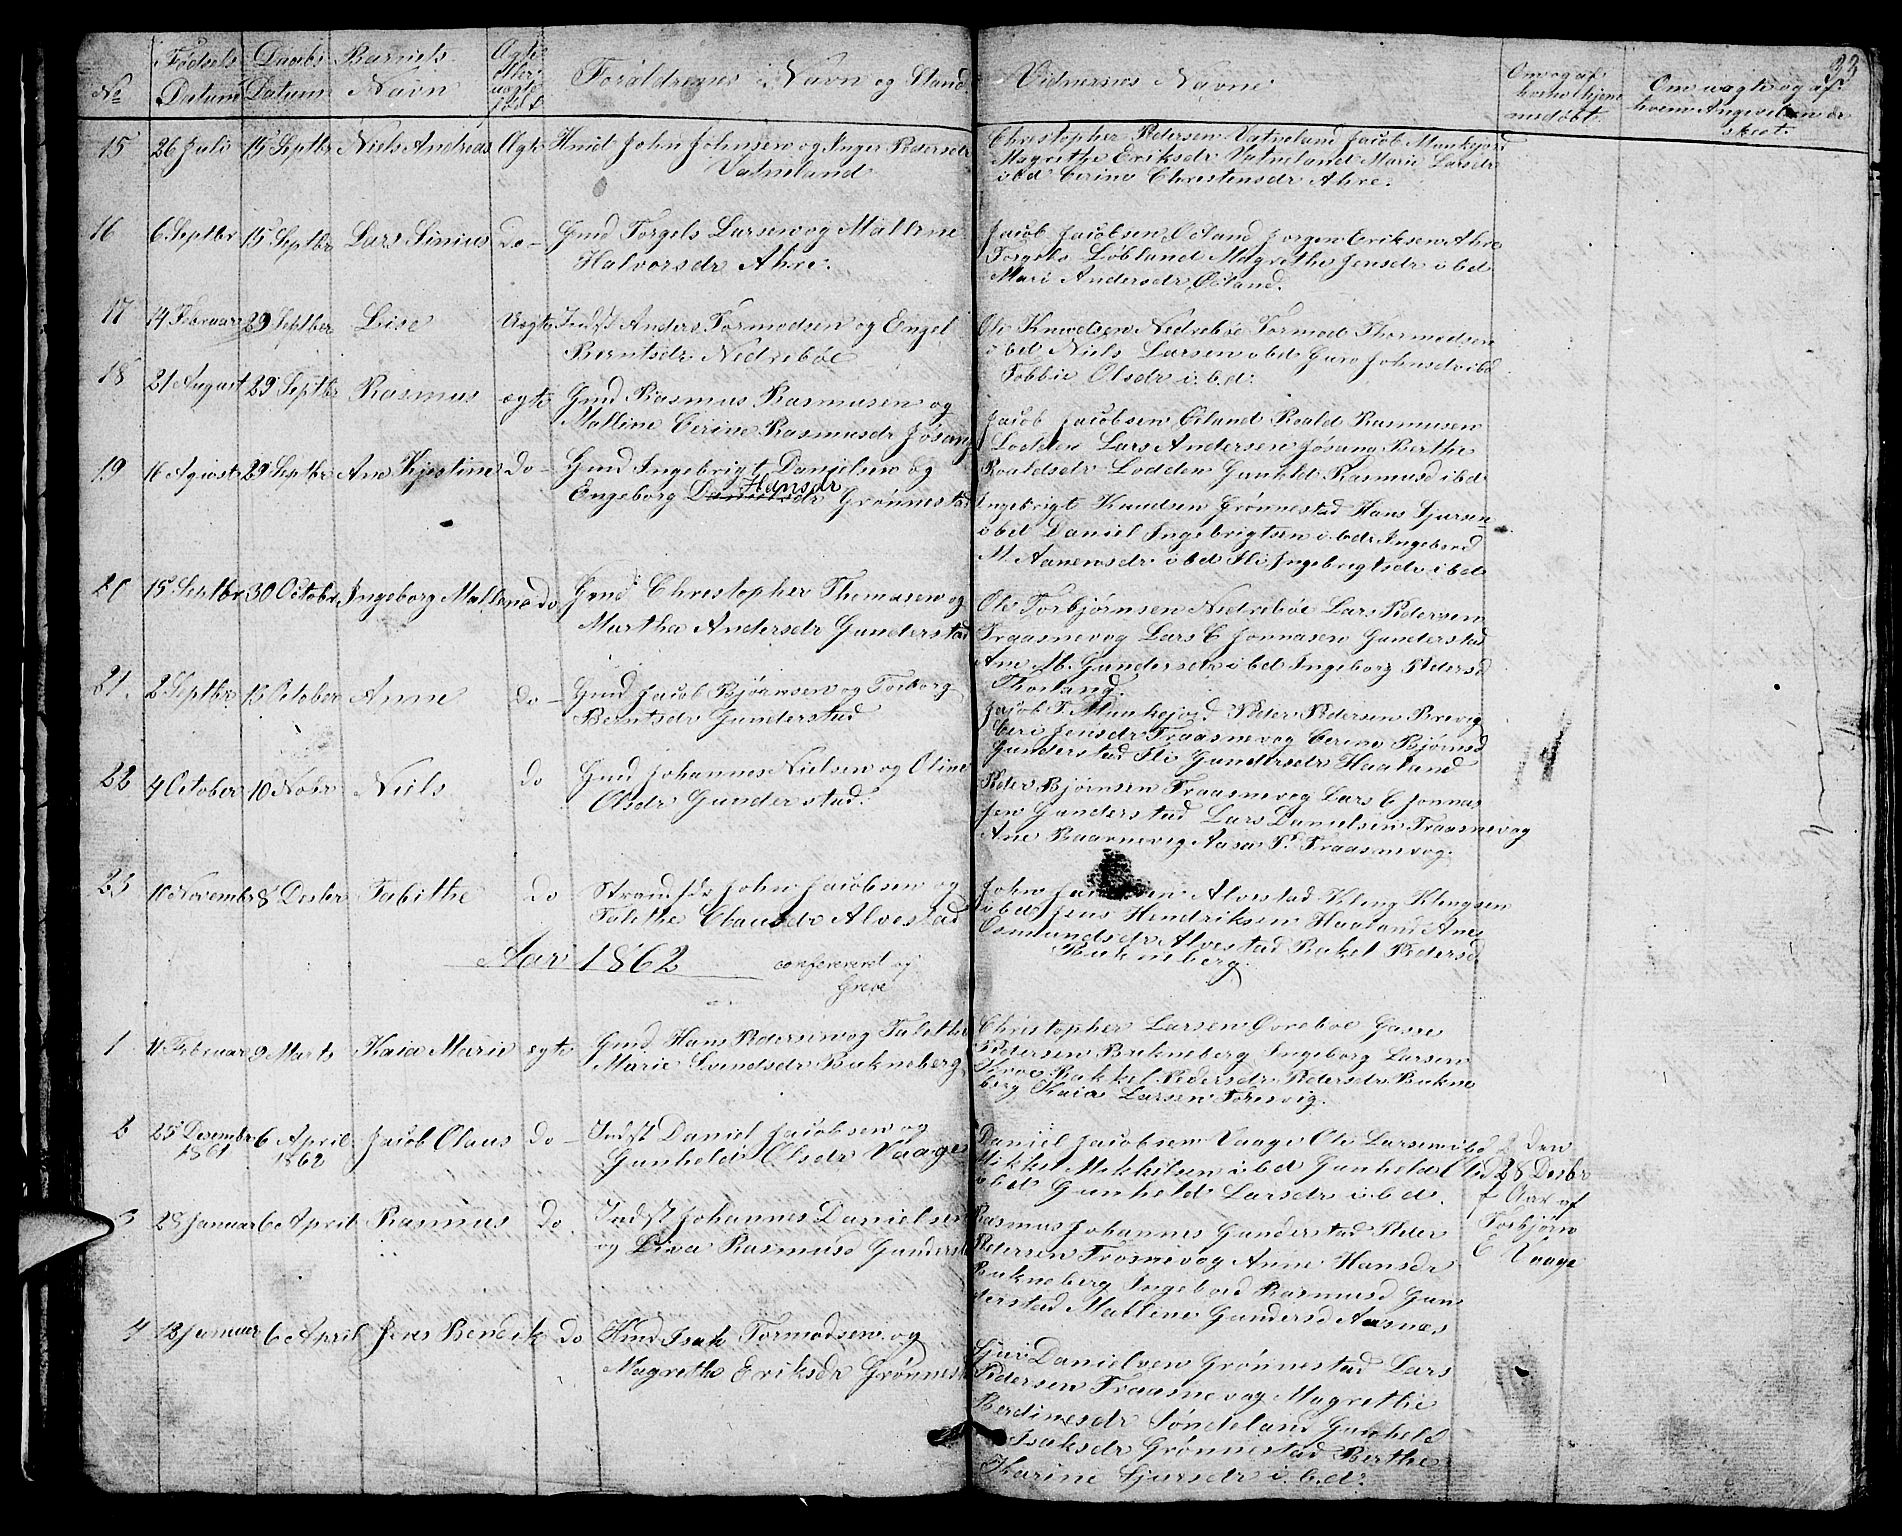 33
No
Fødsels Datum
Daabs Datum
Barnets Navn
Ægte eller uægte født
Forældrenes Navn og Stand
Vidnernes Navne
Om og af hvem hjemmedøbt.
Om uægte og af hvem Angivelsen er skeet.
15 26 Juli 15 Septbr Niels Andreas Ægte Hmd John Johnsen og Inger Pedersdr
Vatneland
Christopher Pedersen Vatneland Jacob Munkejord
Magrethe Eriksdr Vatneland Marie Larsdr
ibd Cerine Christensdr Ahre.
16 6 Septbr 15 Septbr Lars Sinius Do Gmd Torgels Larsen og Mallene
Halvorsdr Ahre.
Jacob Jacobsen Øeland Jørgen Eriksen Ahre
Torgels Løbland Magrethe Jensdr ibd
Mari Andersdr Øeland.
17 14 Februar 29 Septber Lise Uægte Indst Anders Tormodsen og Engel
Berntsdr Nedrebøe
Ole Knudsen Nedrebøe Tormod Thormodsen
ibd Niels Larsen ibd Guro Johnsdr ibd
Tobbie Olsdr i.b.d.
18 21 August 29 Septbr Rasmus ægte Gmd Rasmus Rasmusen og
Malline Cerine Rasmusdr Jøsang
Jacob Jacobsen Øeland Roald Rasmusen
Lodden Lars Andersen Jøsang Berthe
Roaldsdr Lodden Gunild Rasmusd ibd
19 16 Agust 29 Septbr Ane Kjestine Do Gmd Ingebrigt Danielsen og
Hansdr
Engeborg Danielsdr Grønnestad
Ingebrigt Knudsen Grønnestad Hans Sjursen
ibd Daniel Ingebrigtsen i.bd. Ingebord
M Aanensdr ibd Sli Ingebrigtsdr i.bd
20 15 Septbr 30 Octobr Ingeborg Mallene do Gmd Christopher Thomasen og
Martha Andersdr Gunderstad
Ole Torbjørnsen Nedrebøe Lars Pedersen
Traasnevog Lars C Jonnasen Gunderstad
Ane M. Gundersdr i.bd Ingeborg Pedersd
Thorland.
21. 2 Septbr 13 October Anne Do Gmd Jacob Bjørnsen og Torborg
Berntsdr Gunderstad
Jacob T Munkejord Peder Pedersen Brevig
Ceri Jensdr Traasnevog Cerine Bjørnsd
Gunderstad Sli Gundersdr Haaland
22 4 October 10 Nobr Niels Do Gmd Johannes Nielsen og Oline
Olsdr Gunderstad.
Peder Bjørnsen Traasnevog Lars C Jonnas
sen Gunderstad Lars Danielsen Traasnevog
Ane Baarnevig Aasa P. Traasnevog.
23 10 Novembr 8 Desbr Tabithe Do Strandsds John Jacobsen og
Talethe Clausdr Alvestad
John Jacobsen Alvestad Kleng Klengsen
ibd Jens Hendriksen Haaland Ane
Osmundsdr Alvestad Rakel Pedersd
Bukneberg.
Aar 1862
confereret af
Greve
1 11 Februar 9 Marts Kaia Marie ægte Gmd Hans Pedersen og Talethe
Marie Svendsdr Bukneberg
Christopher Larsen Øvrebøe Gasse
Pedersen Bukneberg Ingeborg Larsen
Rakkel Pedersdr Pedersdr Bukne
berg Kaia Larsen Toresvig.
2 25 Desembr 6 April Jacob Claus Do Indst Daniel Jacobsen og
1861 1862
Gunhelda Olsdr Vaage
Daniel Jacobsen Vaage Ole Larsen ibd
Mikkel Mikkelsen i.bd Gunhelda Olsd
ibd Gunheld Larsdr i.b.d.
Den
28 Desbr
f Aar af
Torbjørn
C Vaage
3 28 Januar 6 April Rasmus Do. Indst Johannes Danielsen
og Liva Rasmusd Gunderst
Rasmus Johannes Gunderstad Peder
Pedersen Trosnevog Anne Hansdr
Bukneberg Ingebord Rasmusd Gun
derstad Mallene Gundersd Aasnes
4 13 Januar 6 April Jens Bendik Do Hmd Isak Tormodsen og
Magrethe Eriksdr Grønnest
Sjur Danielsen Grønnestad Lars
Pedersen Traasnevog Magrethe
Berdinesdr Søndeland Gunheld
Isaksdr Grønnestad Berthe
Karine Sjursdr i.b.d.